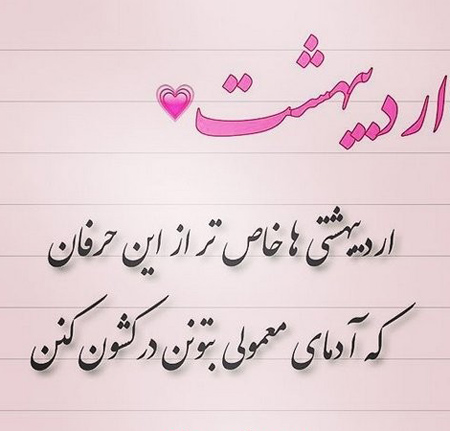 اردیبهشت💗
اردیبهشتی ها خاص تر از این حرفان
که آدمای معمولی بتونن درکشون کنن